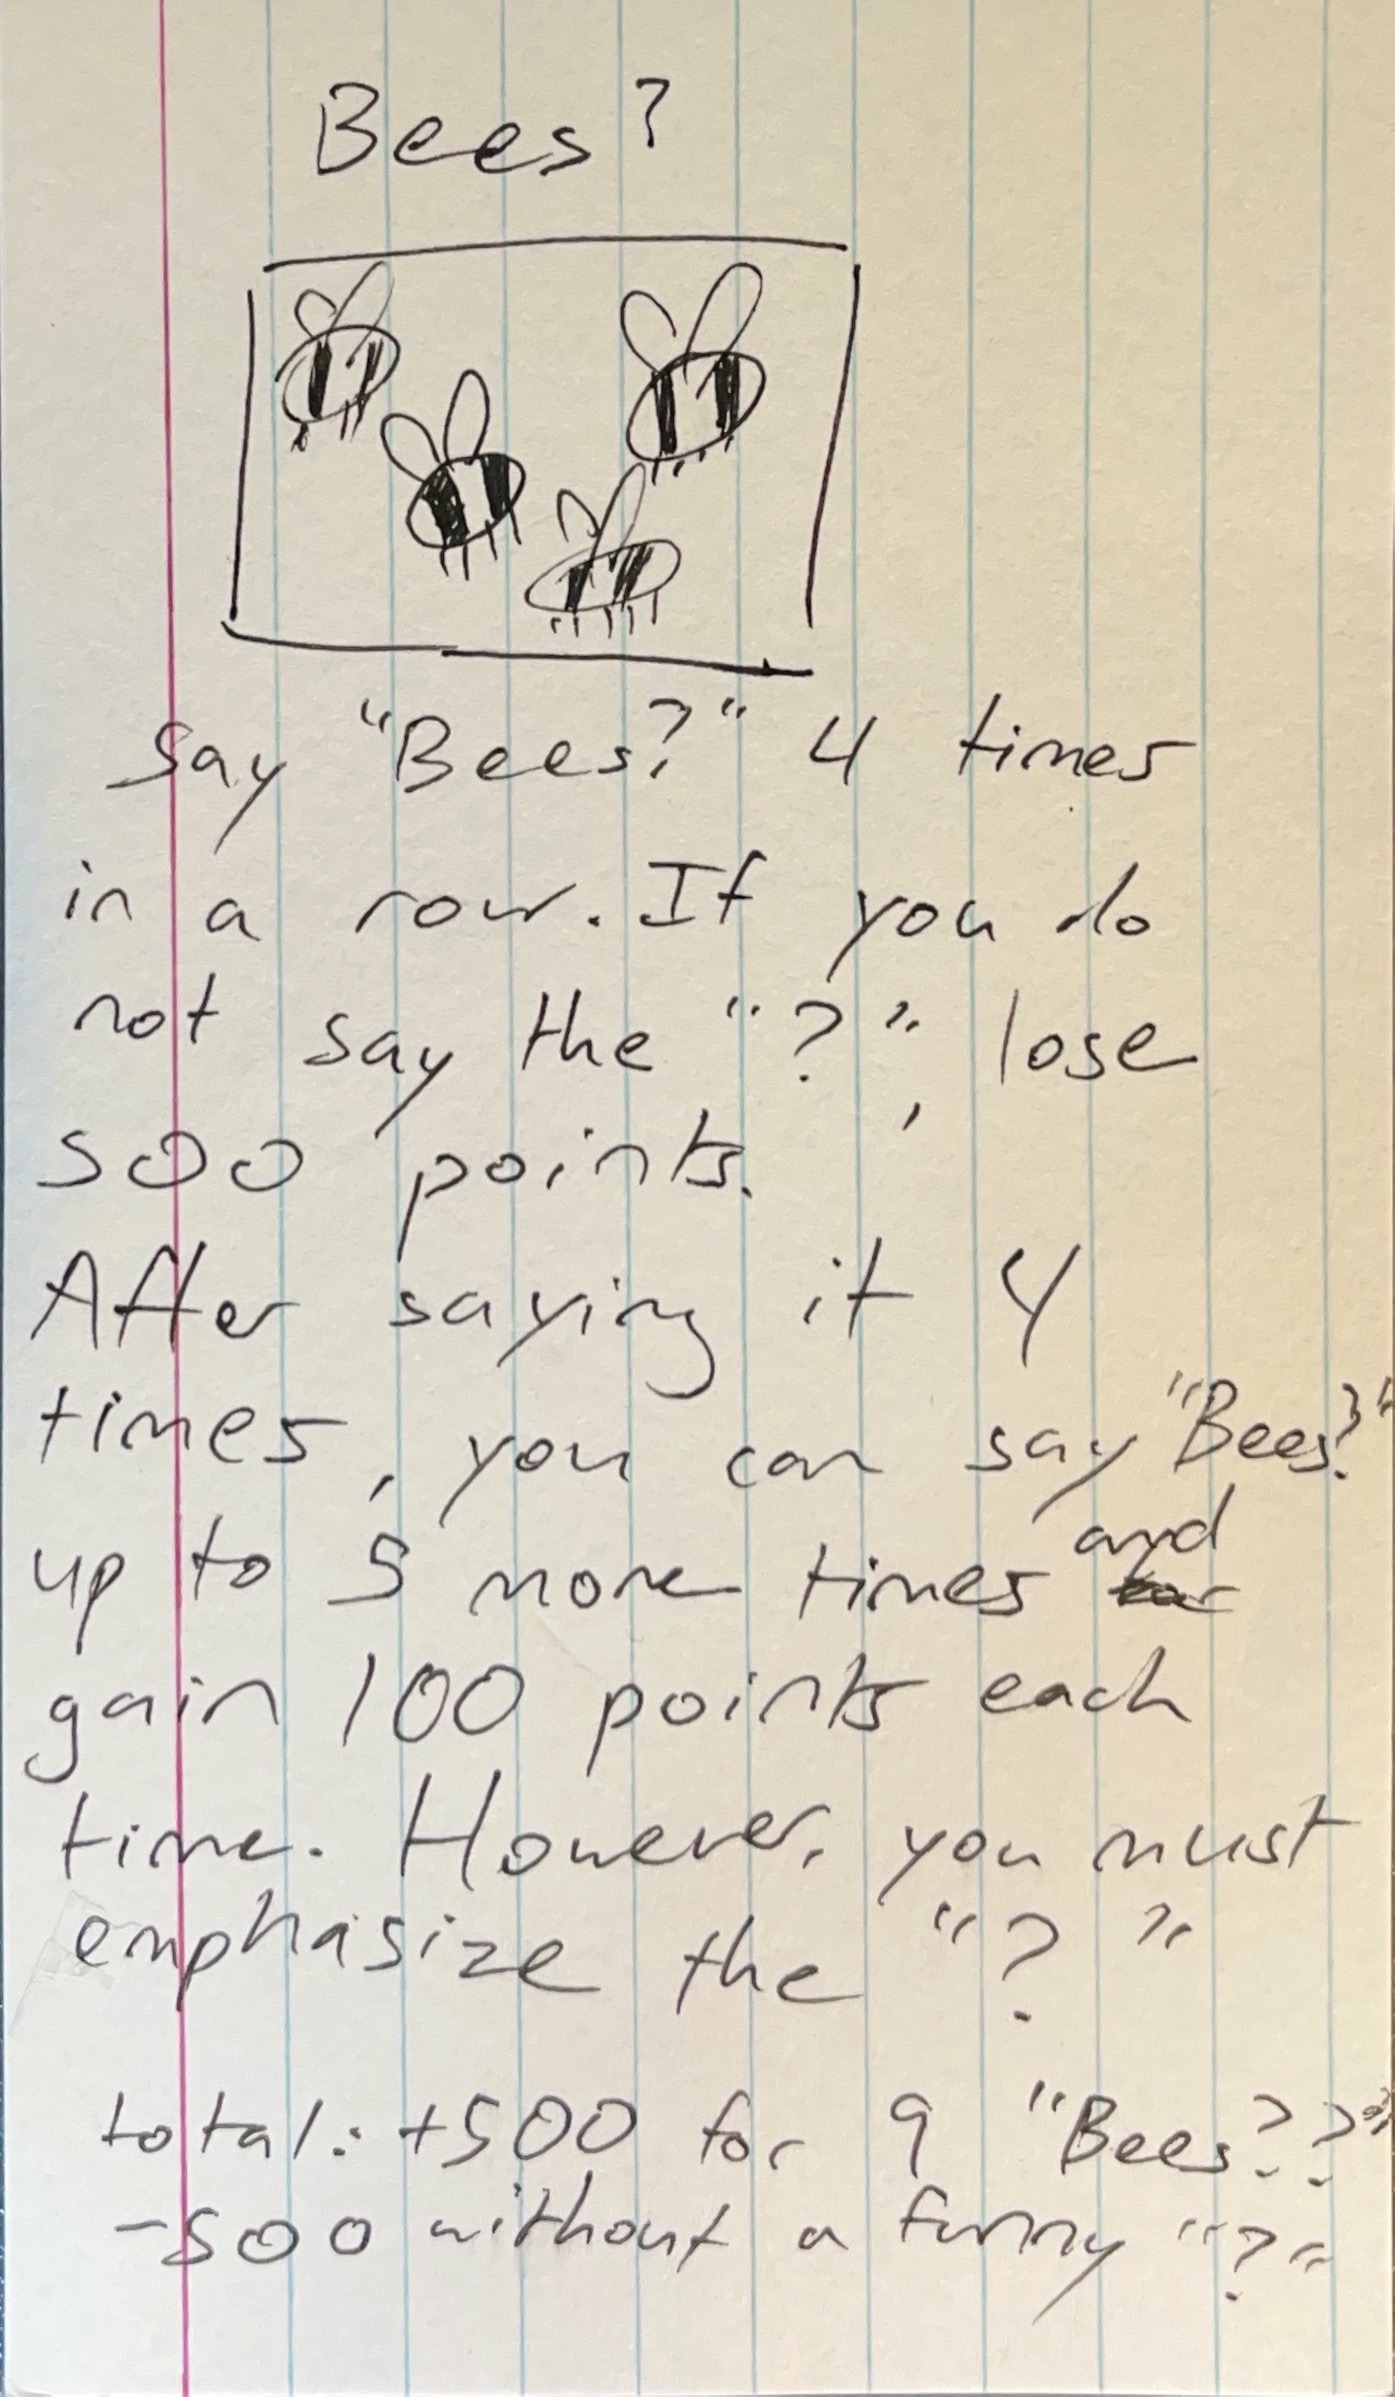 Bees?
Say "Bees?" 4 times
in a row. If you do
not say the "?", lose
500 points.
After saying it 4
times, you can say "Bees?"
up to 5 more times and
gain 100 points each
time. However, you must
emphasize the "?"
total: +500 for 9 "Bees??"
-500 without a funny "?"